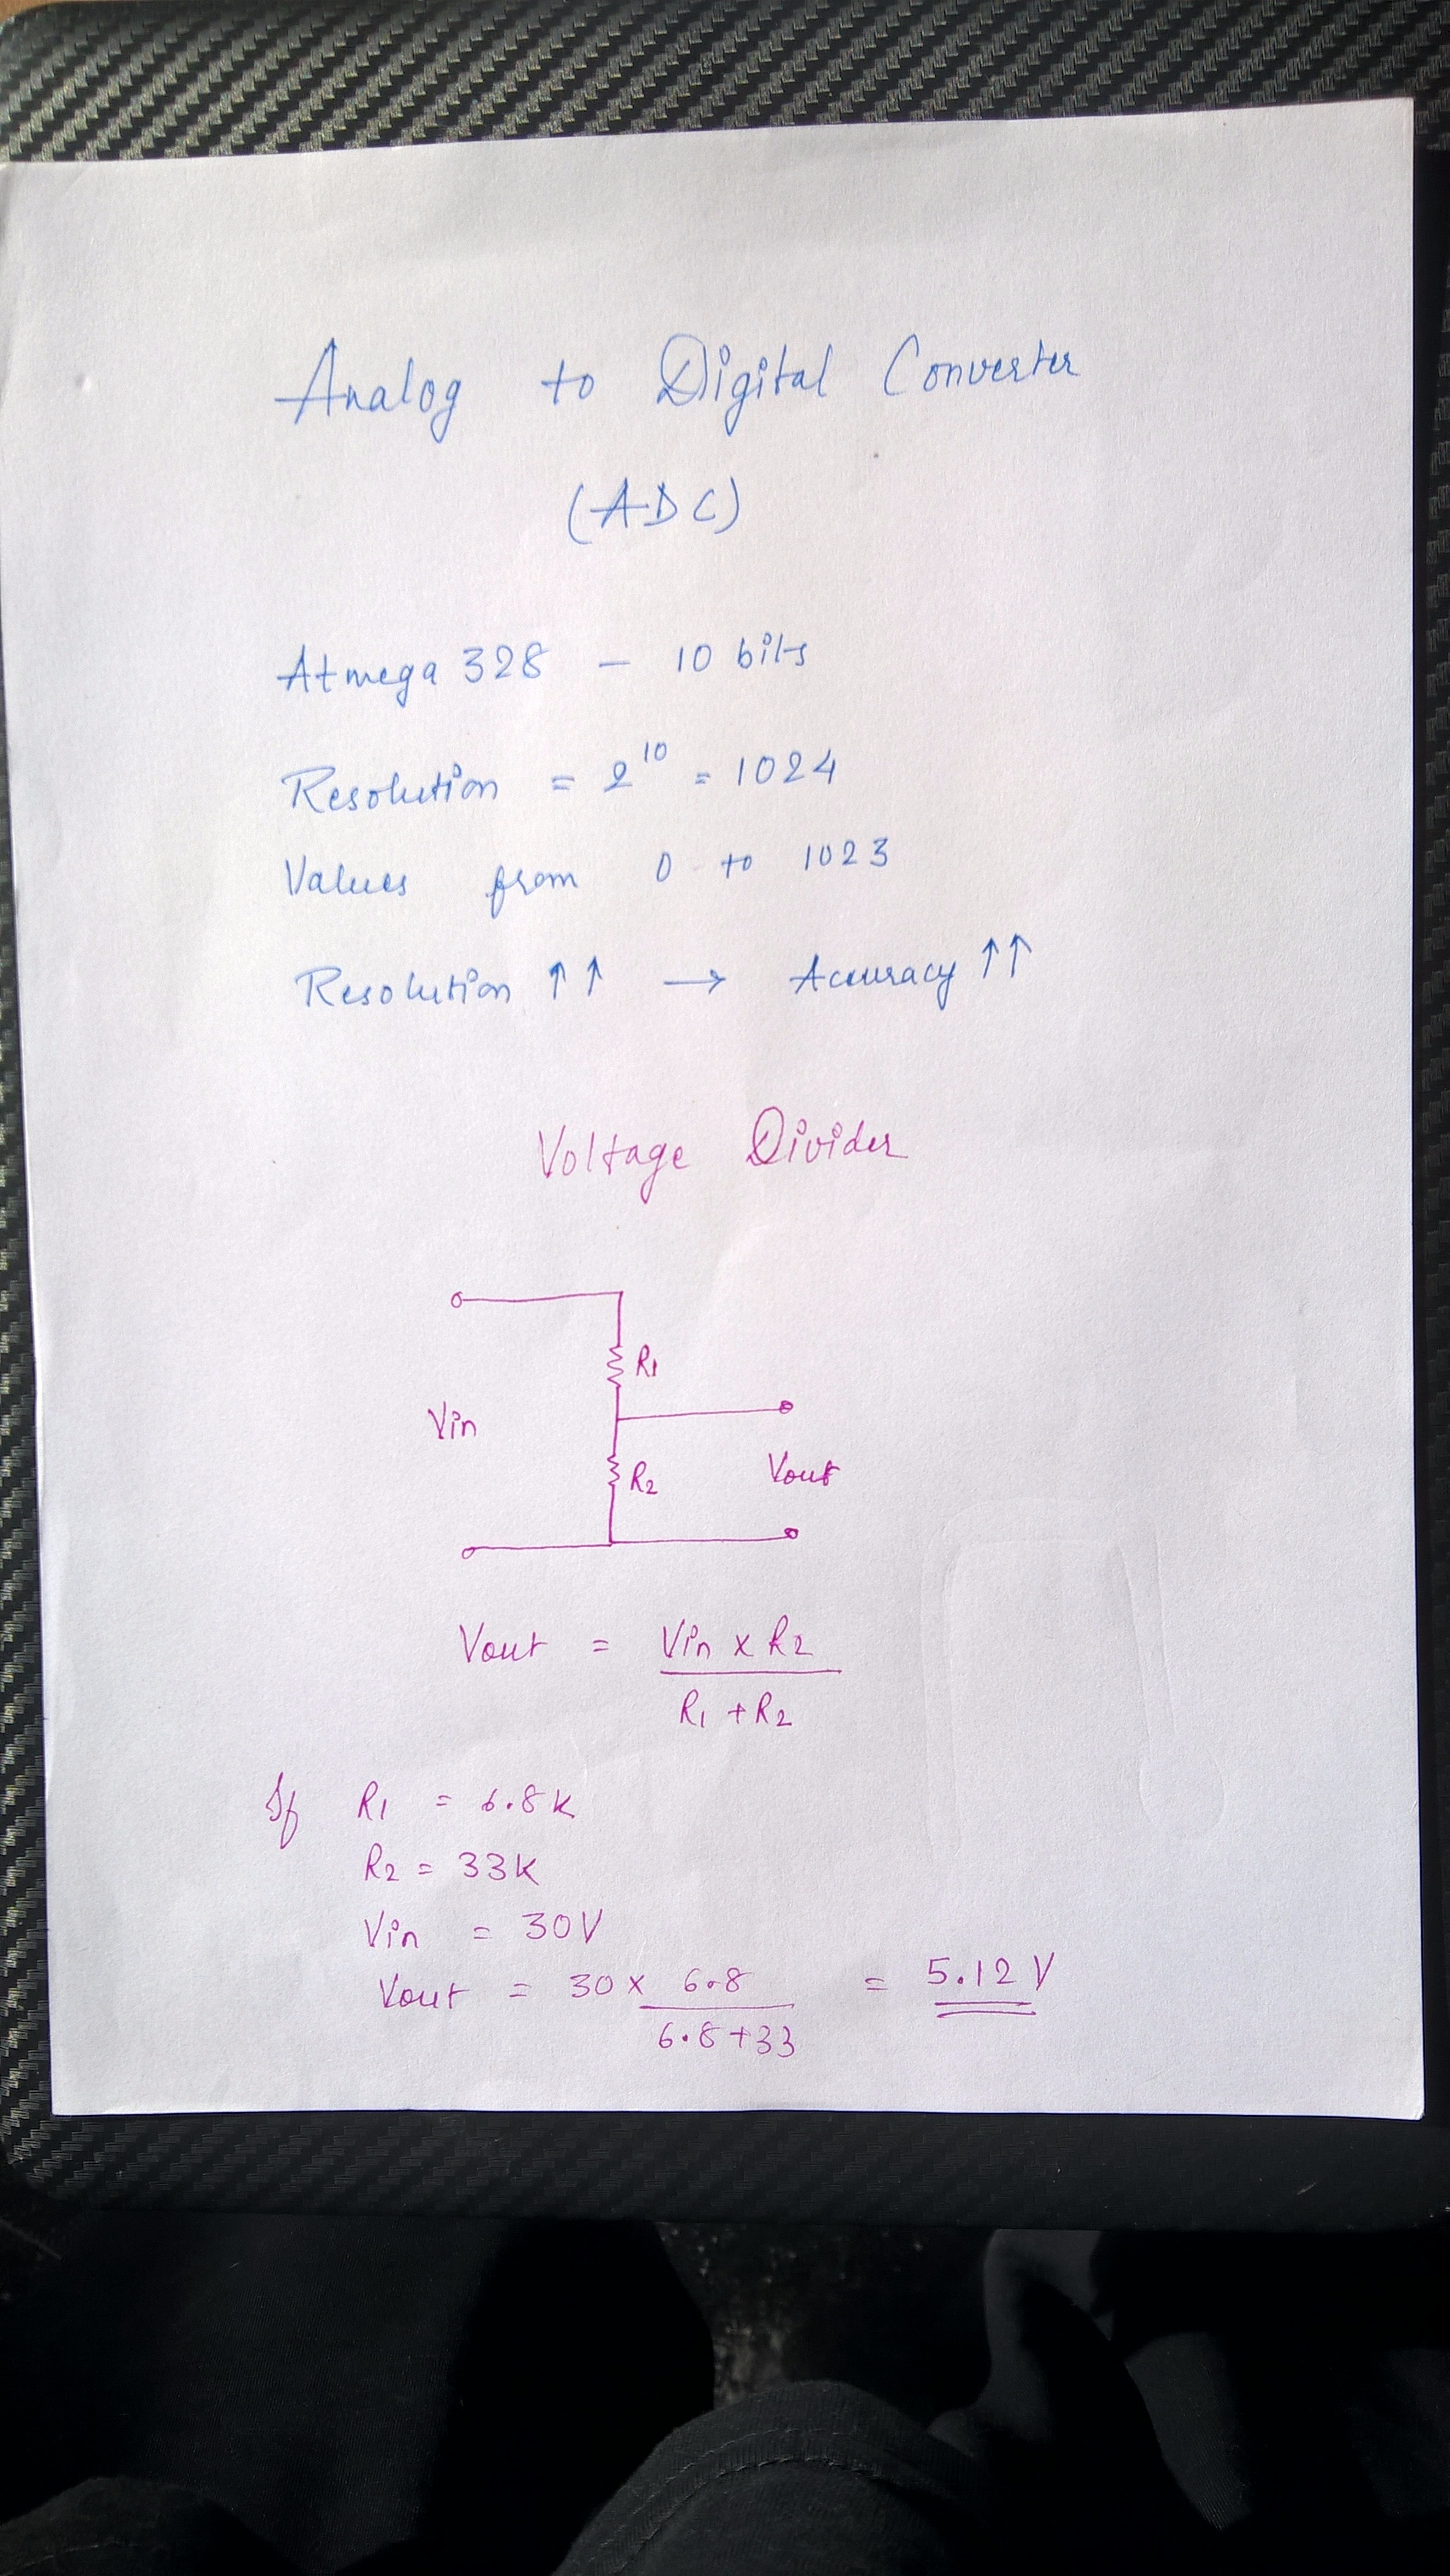 Analog to Digital Converter
(ADC)
Atmega 328 - 10 bits
Resolution = 2¹⁰ = 1024
Values from 0 to 1023
Resolution ↑↑ → Accuracy ↑↑
Voltage Divider
R1
Vin
R2
Vout
Vout = Vin x R2
R1 + R2
If R1 = 6.8K
R2 = 33K
Vin = 30V
Vout = 30 x 6.8 = 5.12V
6.8+33